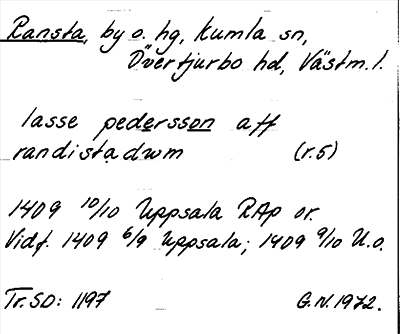 Ransta, by o. hg, Kumla sn,
Övertjurbo hd, Västm. l.
lasse pedersson aff
randistadwm (r. 5)
1409 10/10 Uppsala RAp or.
Vidf. 1409 6/9 Uppsala; 1409 9/10 U.o.
Tr. SD: 1197 G.N. 1972.